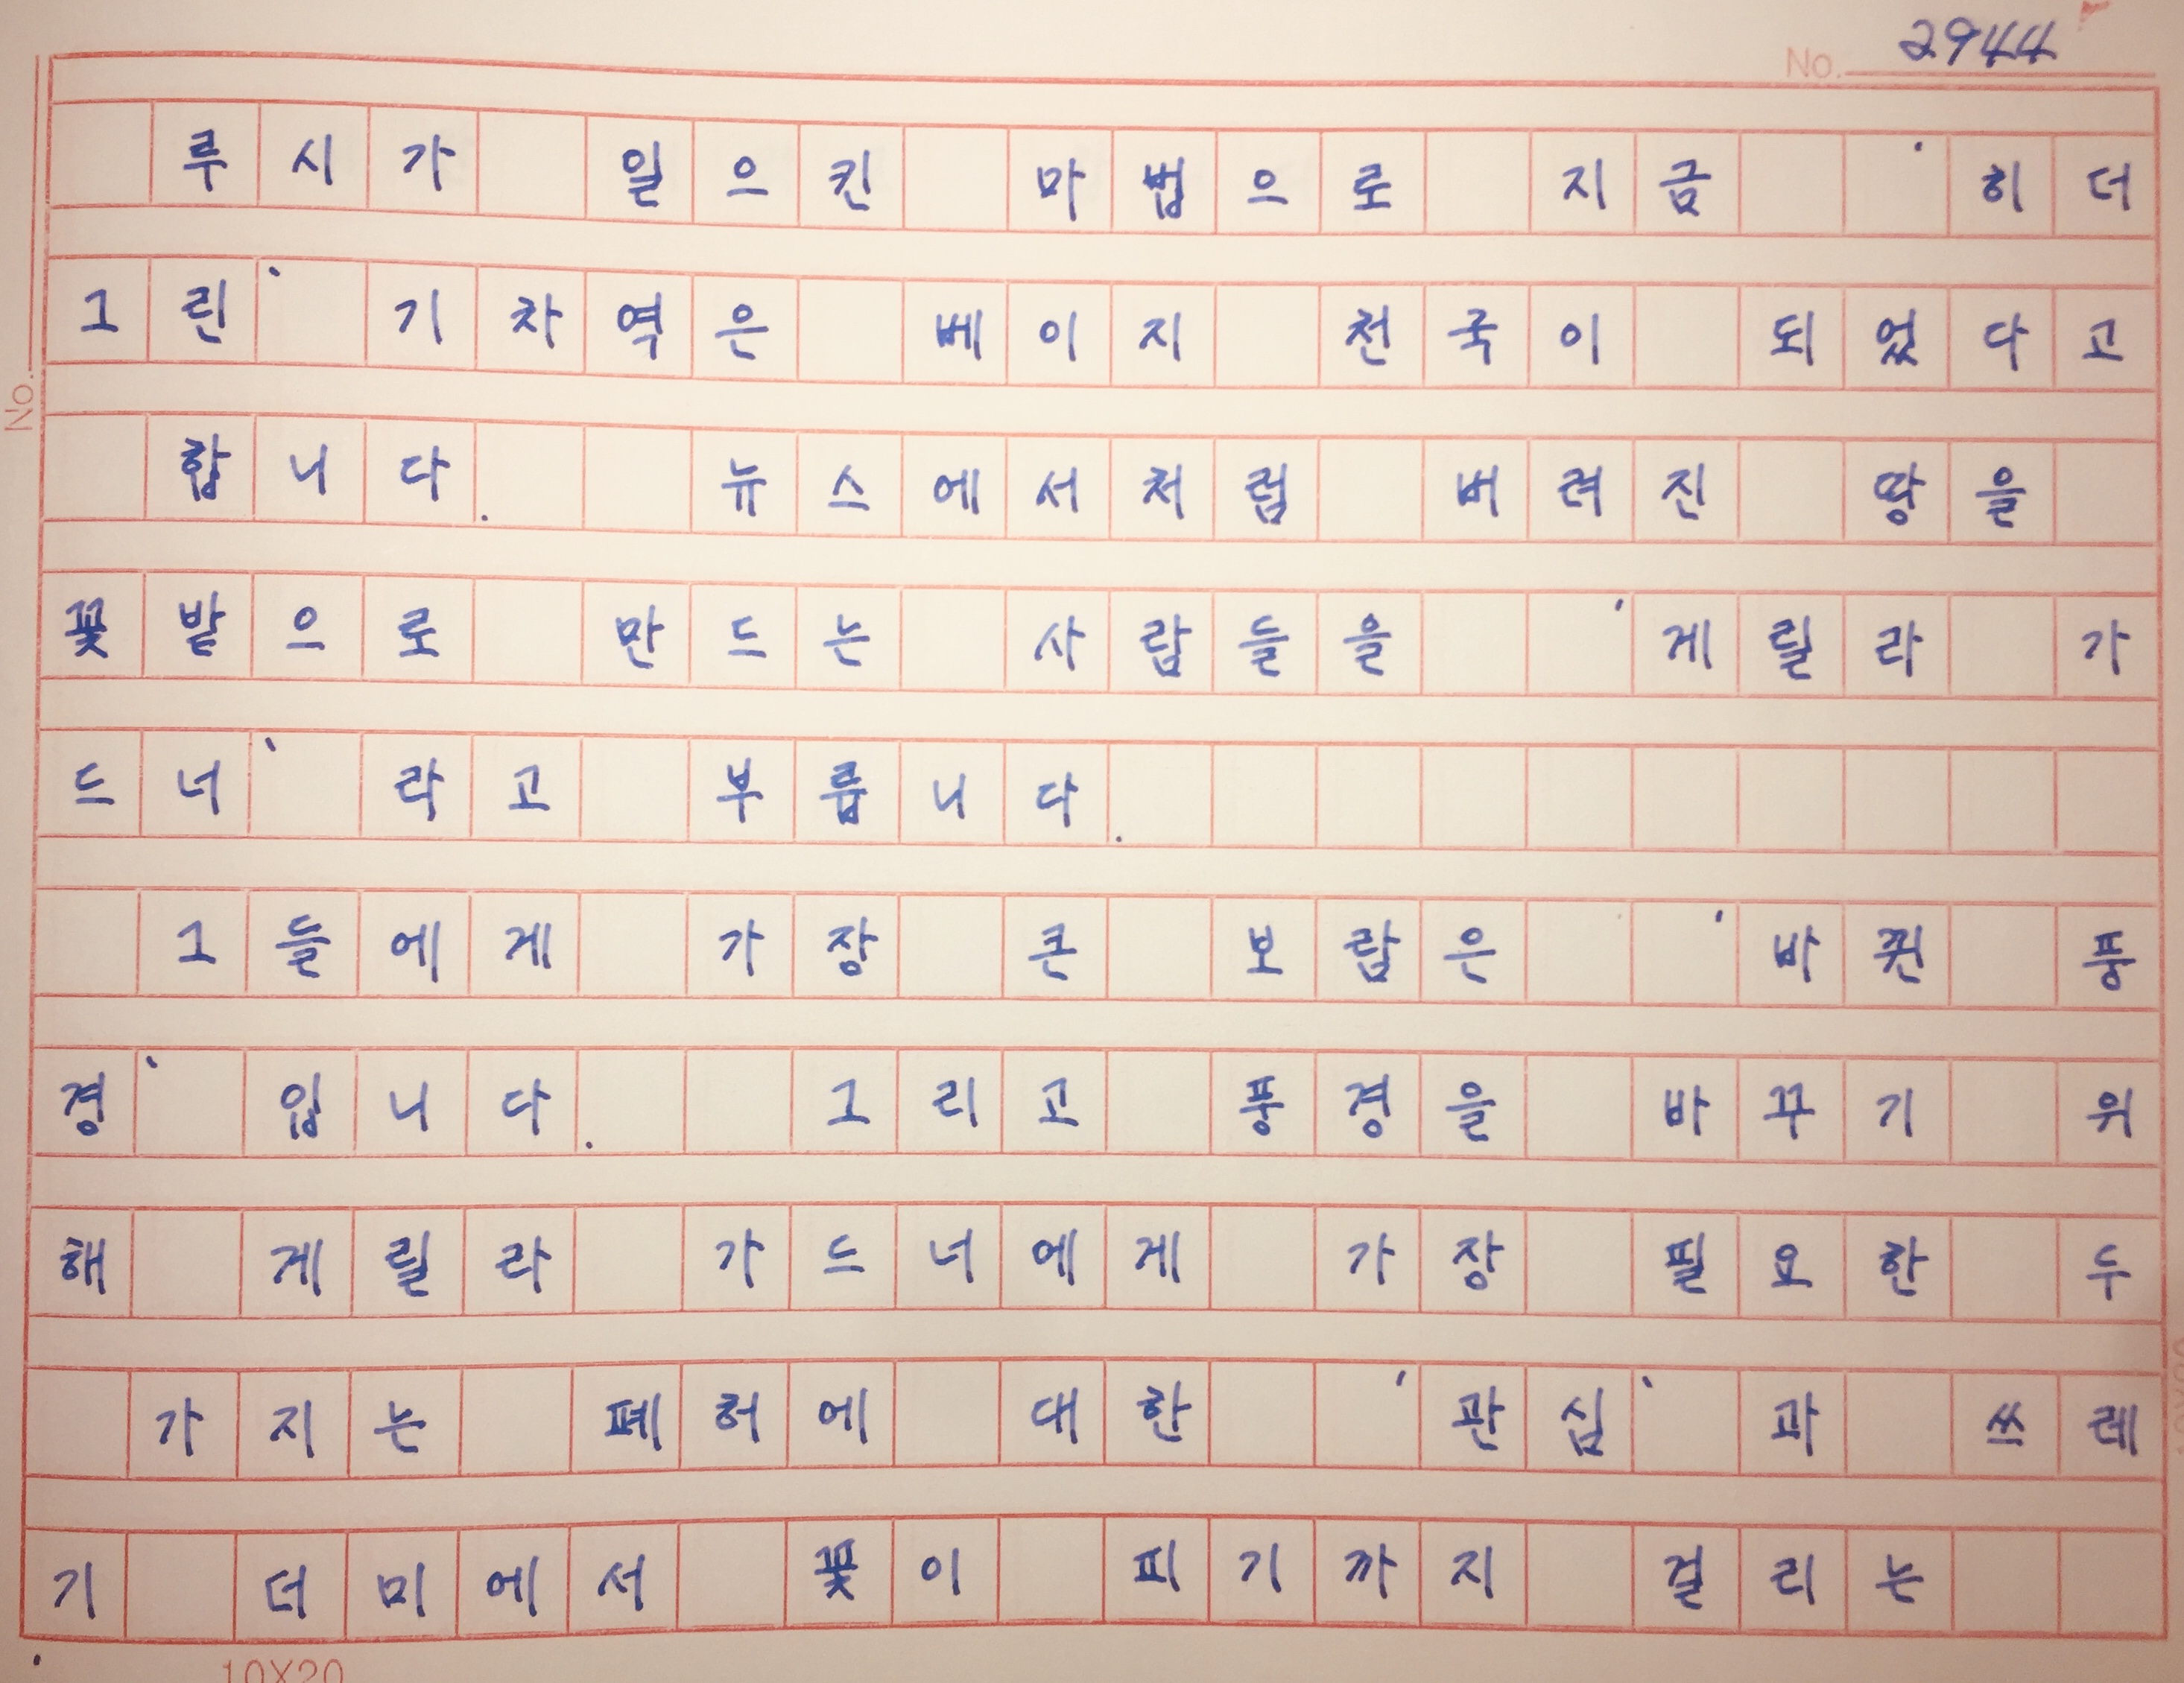 No. 2944
루시가 일으킨 마법으로 지금 '히더
그린' 기차역은 베이지 천국이 되었다고
합니다. 뉴스에서처럼 버려진 땅을
꽃밭으로 만드는 사람들을 '게릴라 가
드너'라고 부릅니다.
그들에게 가장 큰 보람은 '바뀐 풍
경'입니다. 그리고 풍경을 바꾸기 위
해 게릴라 가드너에게 가장 필요한 두
가지는 폐허에 대한 '관심'과 쓰레
기 더미에서 꽃이 피기까지 걸리는
10X20
No.